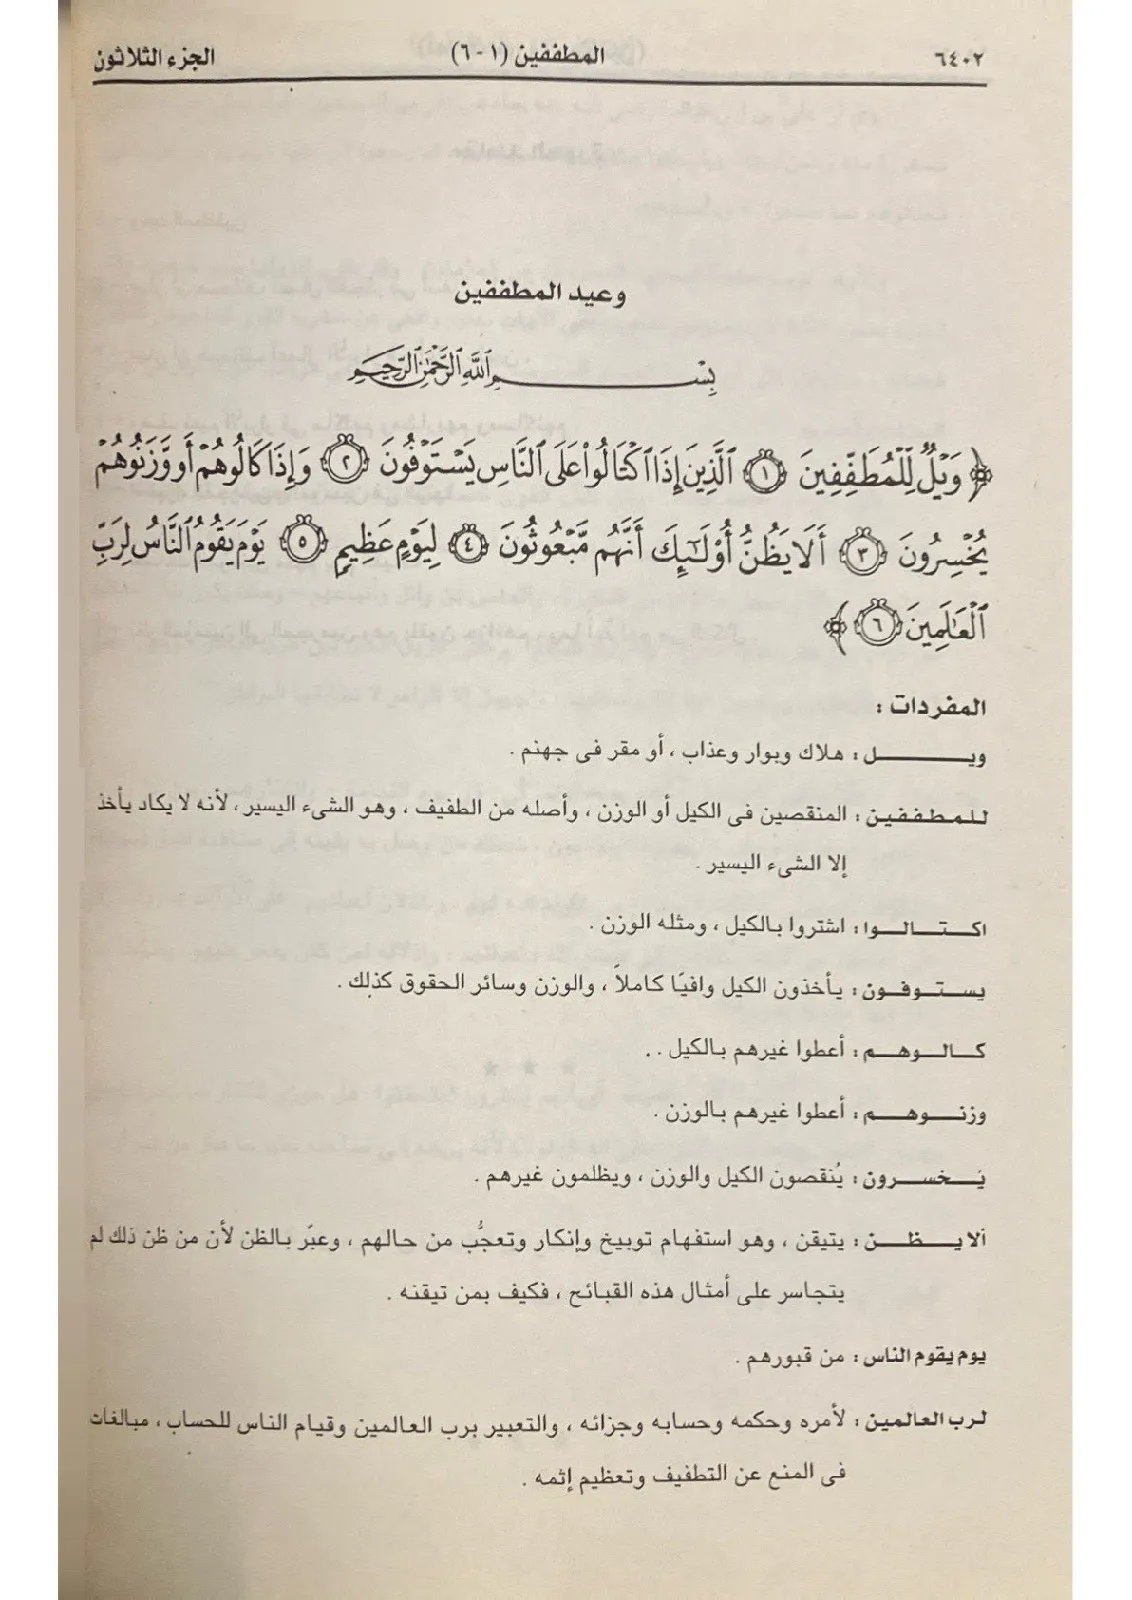 ٦٤٠٢ المطففين (١ - ٦) الجزء الثلاثون
وعيد المطففين
بِسْمِ اللَّهِ الرَّحْمَٰنِ الرَّحِيمِ
﴿ وَيْلٌ لِّلْمُطَفِّفِينَ ١ ٱلَّذِينَ إِذَا ٱكْتَالُوا۟ عَلَى ٱلنَّاسِ يَسْتَوْفُونَ ٢ وَإِذَا كَالُوهُمْ أَو وَّزَنُوهُمْ
يُخْسِرُونَ ٣ أَلَا يَظُنُّ أُو۟لَٰٓئِكَ أَنَّهُم مَّبْعُوثُونَ ٤ لِيَوْمٍ عَظِيمٍ ٥ يَوْمَ يَقُومُ ٱلنَّاسُ لِرَبِّ
ٱلْعَٰلَمِينَ ٦ ﴾
المفردات :
ويـــــل : هلاك وبوار وعذاب ، أو مقر فى جهنم .
للمطففين : المنقصين فى الكيل أو الوزن ، وأصله من الطفيف ، وهو الشىء اليسير ، لأنه لا يكاد يأخذ
إلا الشىء اليسير .
اكـتـالـوا : اشتروا بالكيل ، ومثله الوزن .
يستوفون : يأخذون الكيل وافيًا كاملاً ، والوزن وسائر الحقوق كذلك .
كـالـوهـم : أعطوا غيرهم بالكيل . .
وزنـوهـم : أعطوا غيرهم بالوزن .
يـخسـرون : يُنقصون الكيل والوزن ، ويظلمون غيرهم .
ألا يـظـن : يتيقن ، وهو استفهام توبيخ وإنكار وتعجُّب من حالهم ، وعبّر بالظن لأن من ظن ذلك لم
يتجاسر على أمثال هذه القبائح ، فكيف بمن تيقنه .
يوم يقوم الناس : من قبورهم .
لرب العالمين : لأمره وحكمه وحسابه وجزائه ، والتعبير برب العالمين وقيام الناس للحساب ، مبالغات
فى المنع عن التطفيف وتعظيم إثمه .